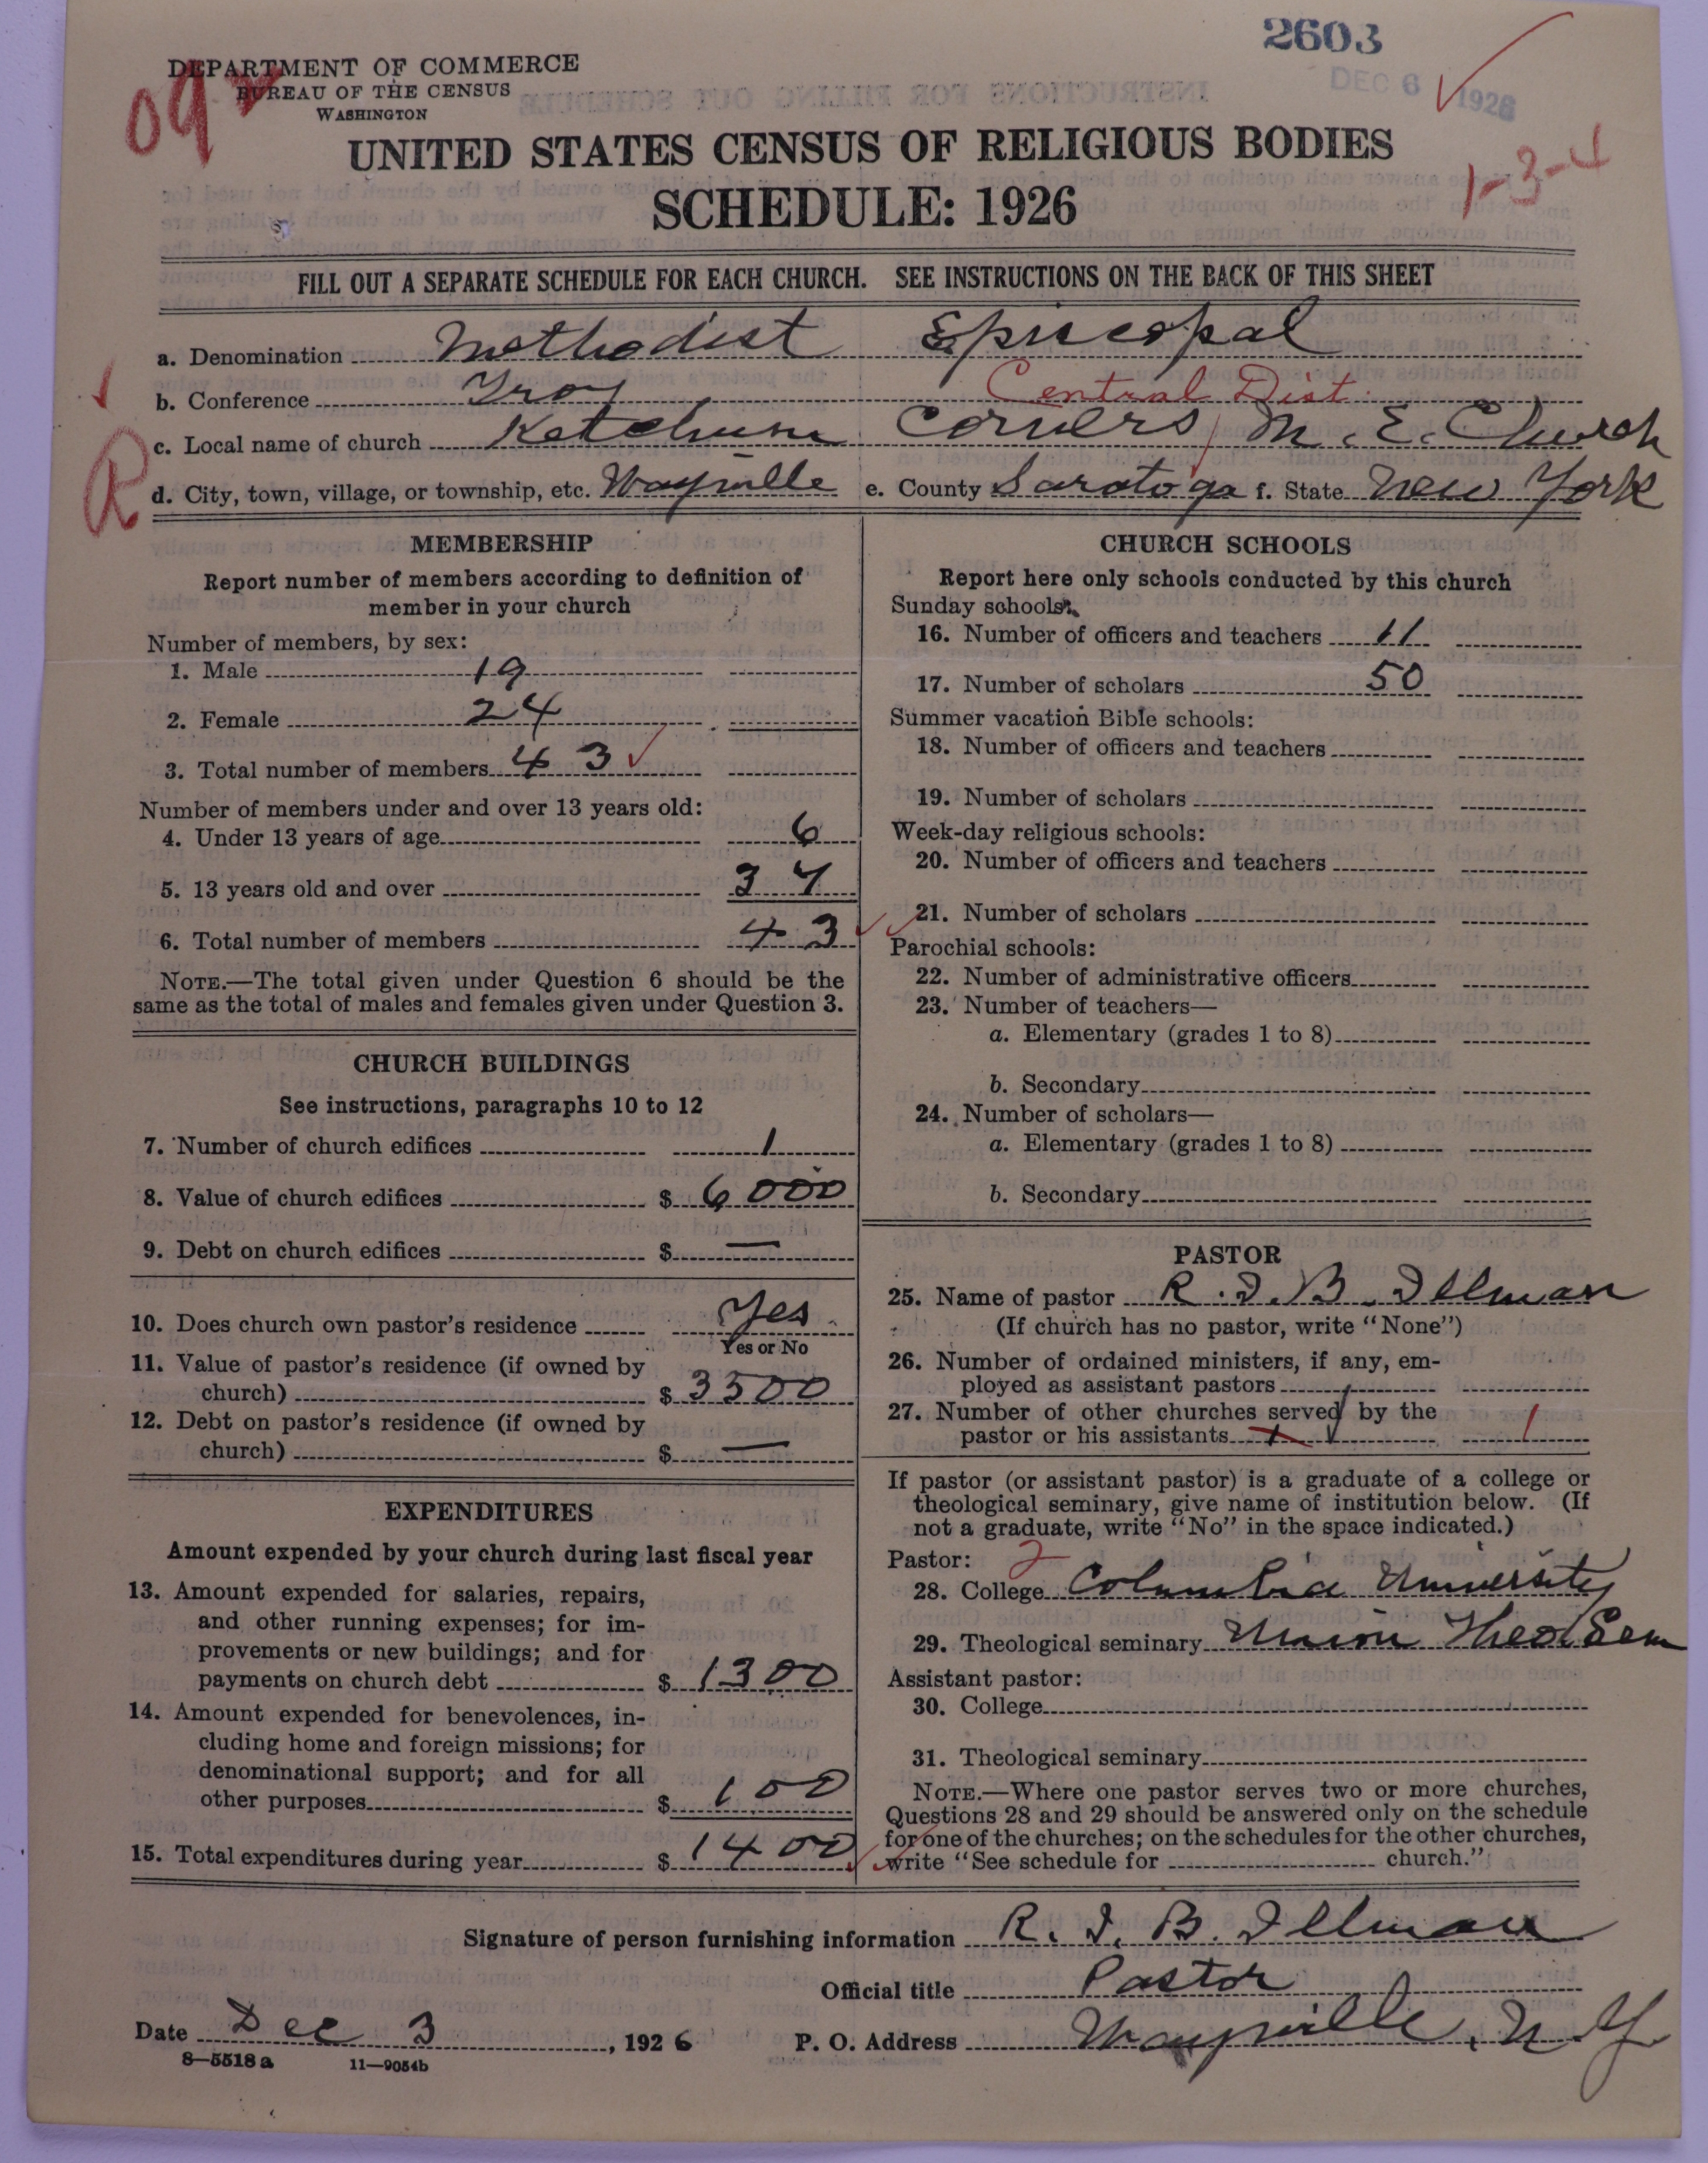 2603
DEC 6 1926
DEPARTMENT OF COMMERCE
BUREAU OF THE CENSUS
WASHINGTON
09
UNITED STATES CENSUS OF RELIGIOUS BODIES
SCHEDULE: 1926
1-3-4
FILL OUT A SEPARATE SCHEDULE FOR EACH CHURCH. SEE INSTRUCTIONS ON THE BACK OF THIS SHEET
a. Denomination Methodist Episcopal
b. Conference Troy Central Dist.
c. Local name of church Ketchum Corners M. E. Church
R
d. City, town, village, or township, etc. Wayville e. County Saratoga f. State New York
MEMBERSHIP
Report number of members according to definition of
member in your church
Number of members, by sex:
1. Male 19
2. Female 24
3. Total number of members 43
Number of members under and over 13 years old:
4. Under 13 years of age 6
5. 13 years old and over 37
6. Total number of members 43
NOTE.—The total given under Question 6 should be the
same as the total of males and females given under Question 3.
CHURCH BUILDINGS
See instructions, paragraphs 10 to 12
7. Number of church edifices 1
8. Value of church edifices $ 6000
9. Debt on church edifices $ —
10. Does church own pastor's residence Yes
Yes or No
11. Value of pastor's residence (if owned by
church) $ 3500
12. Debt on pastor's residence (if owned by
church) $ —
EXPENDITURES
Amount expended by your church during last fiscal year
13. Amount expended for salaries, repairs,
and other running expenses; for im-
provements or new buildings; and for
payments on church debt $ 1300
14. Amount expended for benevolences, in-
cluding home and foreign missions; for
denominational support; and for all
other purposes $ 100
15. Total expenditures during year $ 1400
CHURCH SCHOOLS
Report here only schools conducted by this church
Sunday schools:
16. Number of officers and teachers 11
17. Number of scholars 50
Summer vacation Bible schools:
18. Number of officers and teachers
19. Number of scholars
Week-day religious schools:
20. Number of officers and teachers
21. Number of scholars
Parochial schools:
22. Number of administrative officers
23. Number of teachers—
a. Elementary (grades 1 to 8)
b. Secondary
24. Number of scholars—
a. Elementary (grades 1 to 8)
b. Secondary
PASTOR
25. Name of pastor R. I. B. Illman
(If church has no pastor, write "None")
26. Number of ordained ministers, if any, em-
ployed as assistant pastors
27. Number of other churches served by the
pastor or his assistants 1
If pastor (or assistant pastor) is a graduate of a college or
theological seminary, give name of institution below. (If
not a graduate, write "No" in the space indicated.)
Pastor: 2
28. College Columbia University
29. Theological seminary Union Theol Sem
Assistant pastor:
30. College
31. Theological seminary
NOTE.—Where one pastor serves two or more churches,
Questions 28 and 29 should be answered only on the schedule
for one of the churches; on the schedules for the other churches,
write "See schedule for church."
Signature of person furnishing information R. I. B. Illman
Official title Pastor
Date Dec 3, 1926 P. O. Address Wayville, N Y
8—5518 a 11—9054b